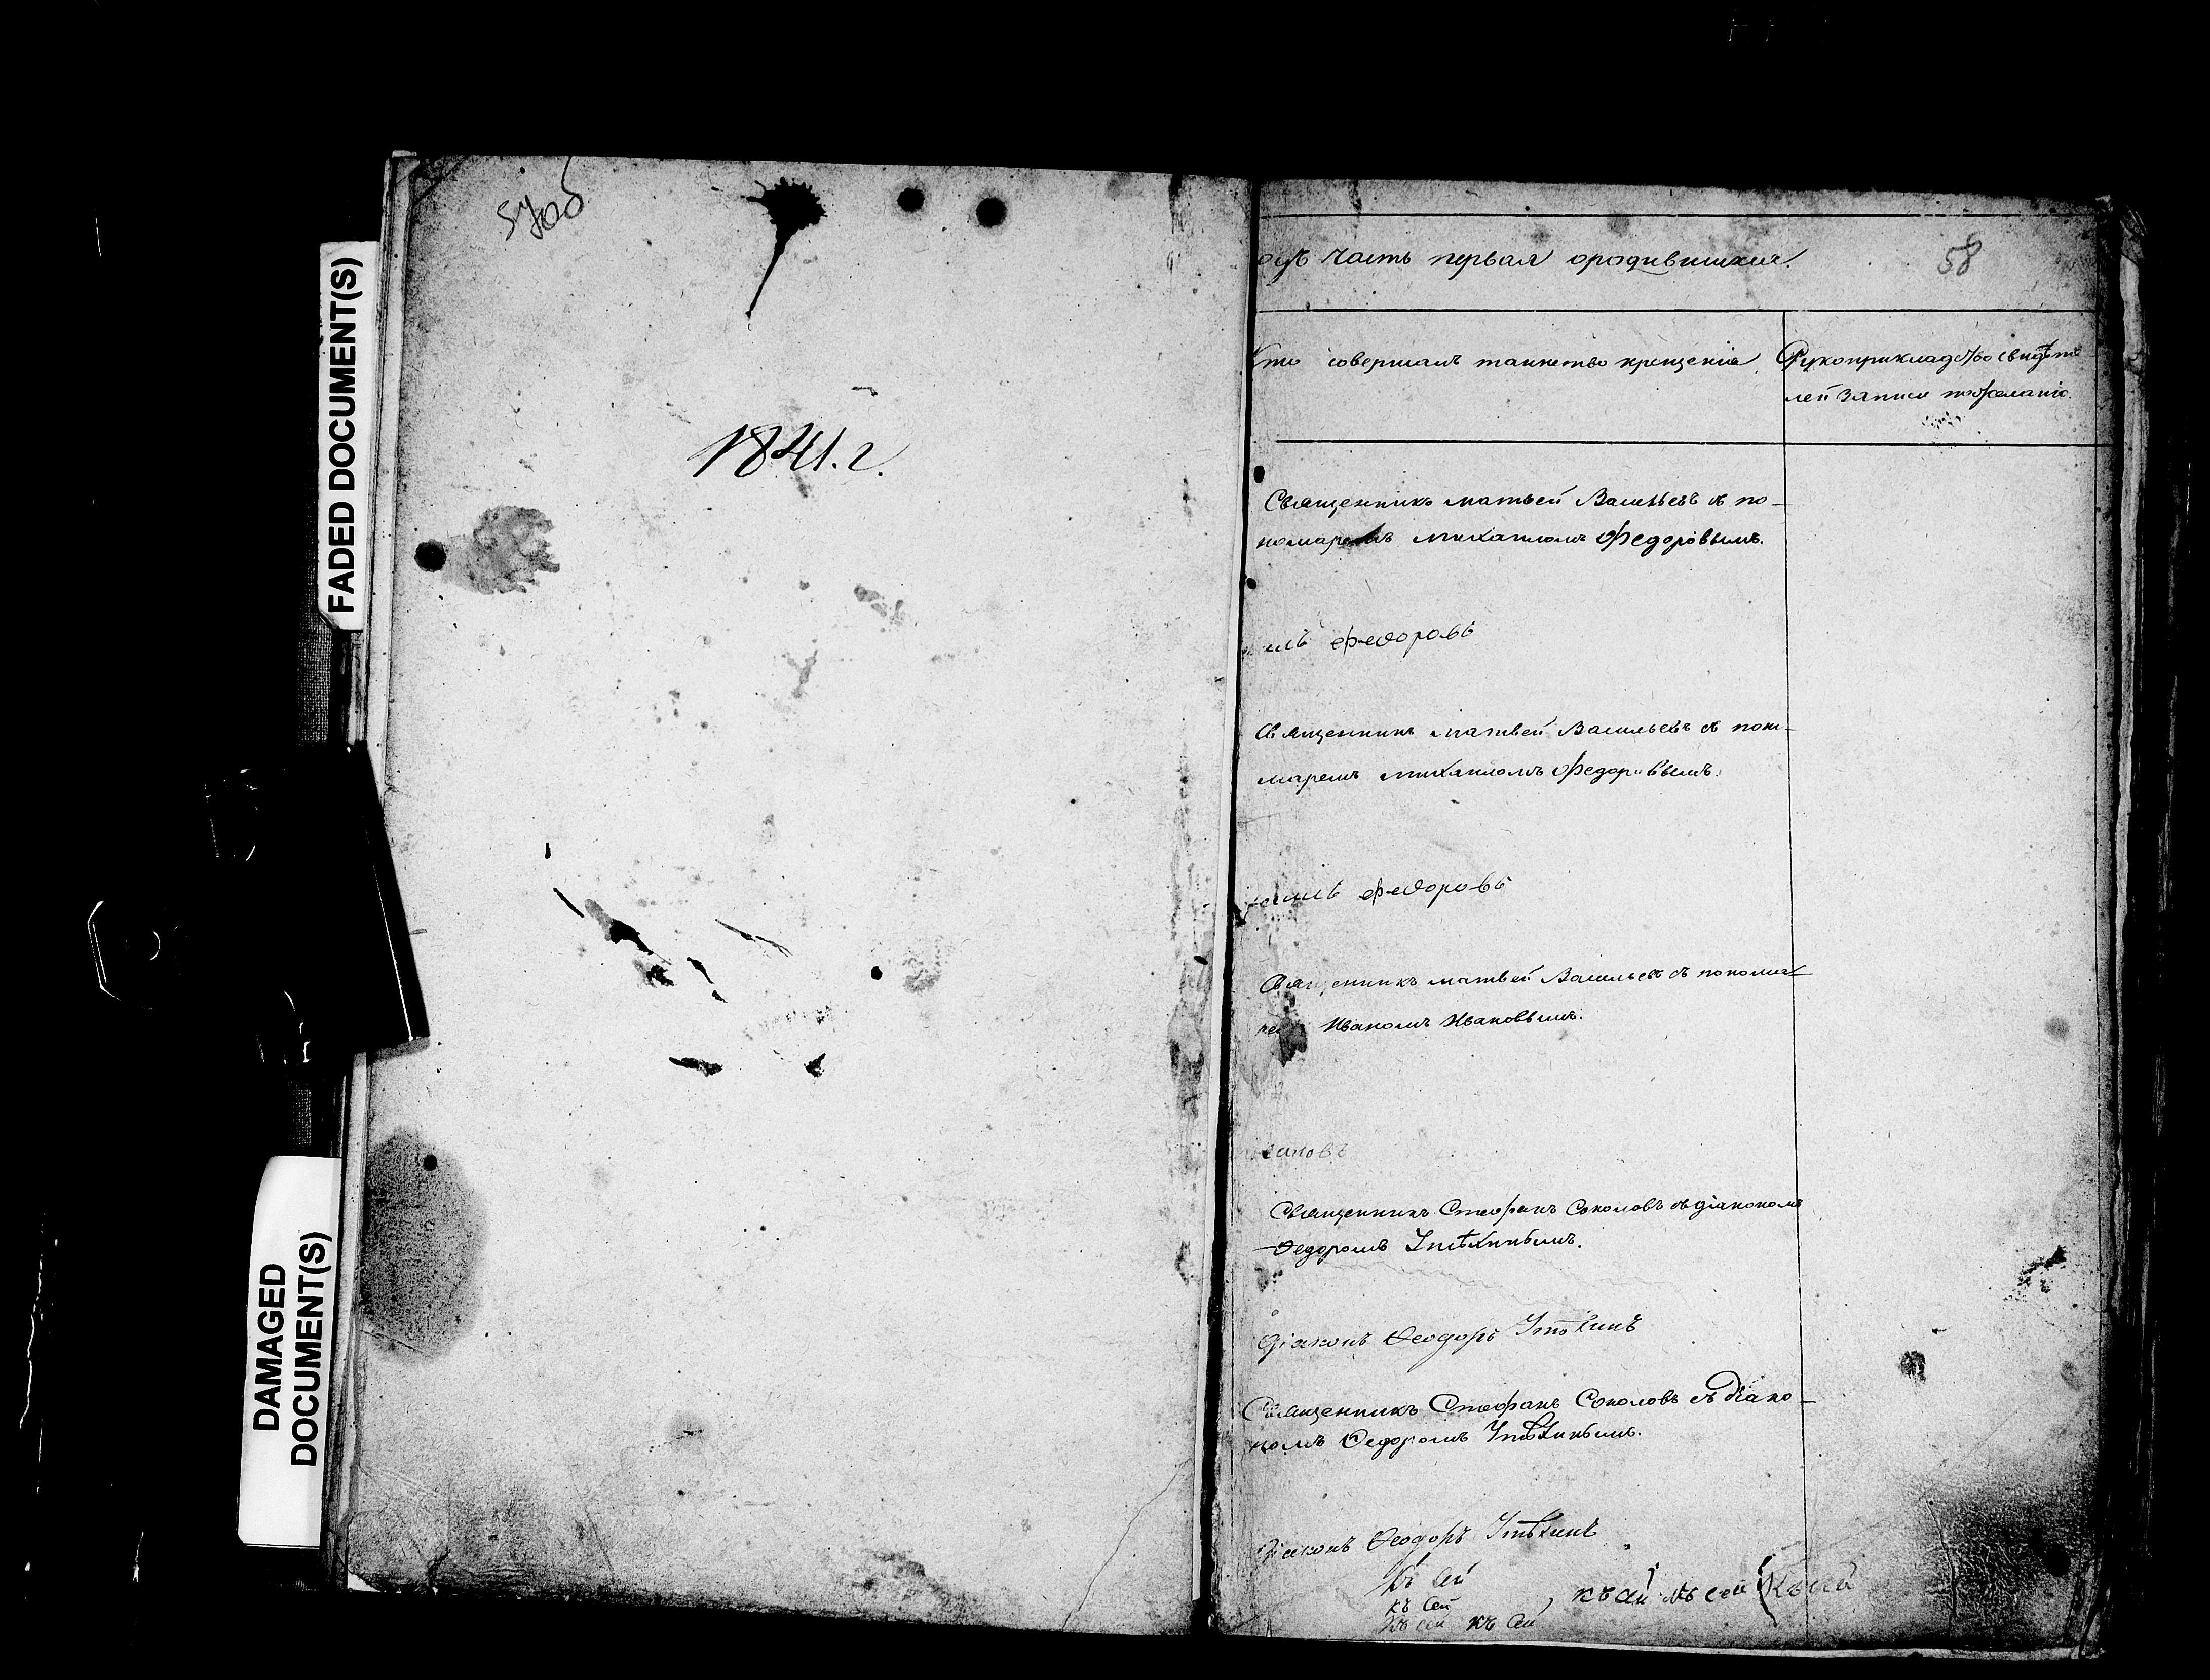 FADED DOCUMENT(S)
DAMAGED
DOCUMENT(S)
1841. г.
58
одъ часть первая ородившихся.
Кто совершалъ таинство крещенія
Рукоприкладство свидѣте
лей записи пожеланію.
Священникъ матвей Васильевъ съ по-
номаремъ михаиломъ Федоровымъ.
илъ федоровъ
Священникъ матвей Васильевъ съ поно-
маремъ михаиломъ Федоровымъ.
хаилъ федоровъ
Священникъ матвей Васильевъ съ понома-
Иваномъ Ивановымъ.
вановъ
Священникъ Стефанъ Соколовъ съ діакономъ
Федоромъ
Діаконъ Феодоръ
Священникъ Стефанъ Соколовъ съ діако-
номъ Федоромъ
Діаконъ Феодоръ
Къ сей
къ сей
къ сей къ сей
къ сей къ сей